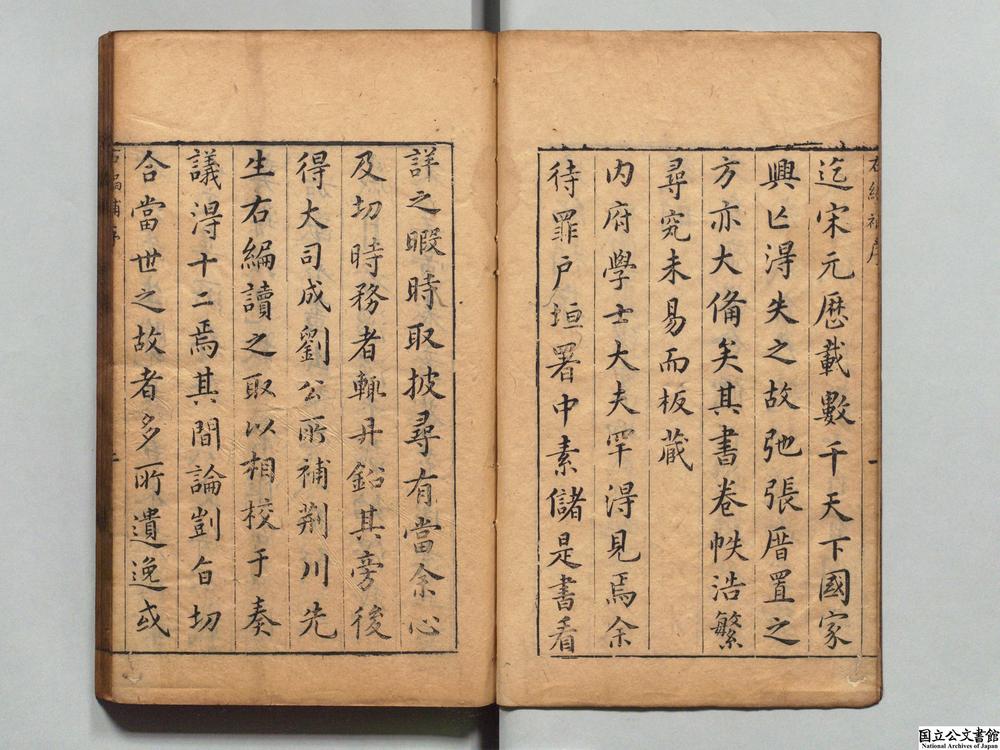 右編補序
迄宋元歷載數千天下國家
興亡淂失之故弛張厝置之
方亦大俻矣其書卷帙浩繁
尋究未易而板蔵
内府學士大夫罕淂見焉余
待罪户垣署中素儲是書看
詳之暇時取披尋有當余心
及切時務者輙丹鉛其旁後
得大司成劉公所補荆川先
生右編讀之取以相校于奏
議淂十二焉其間論剴旨切
合當世之故者多所遺逸或
右編補序
二
国立公文書館
National Archives of Japan